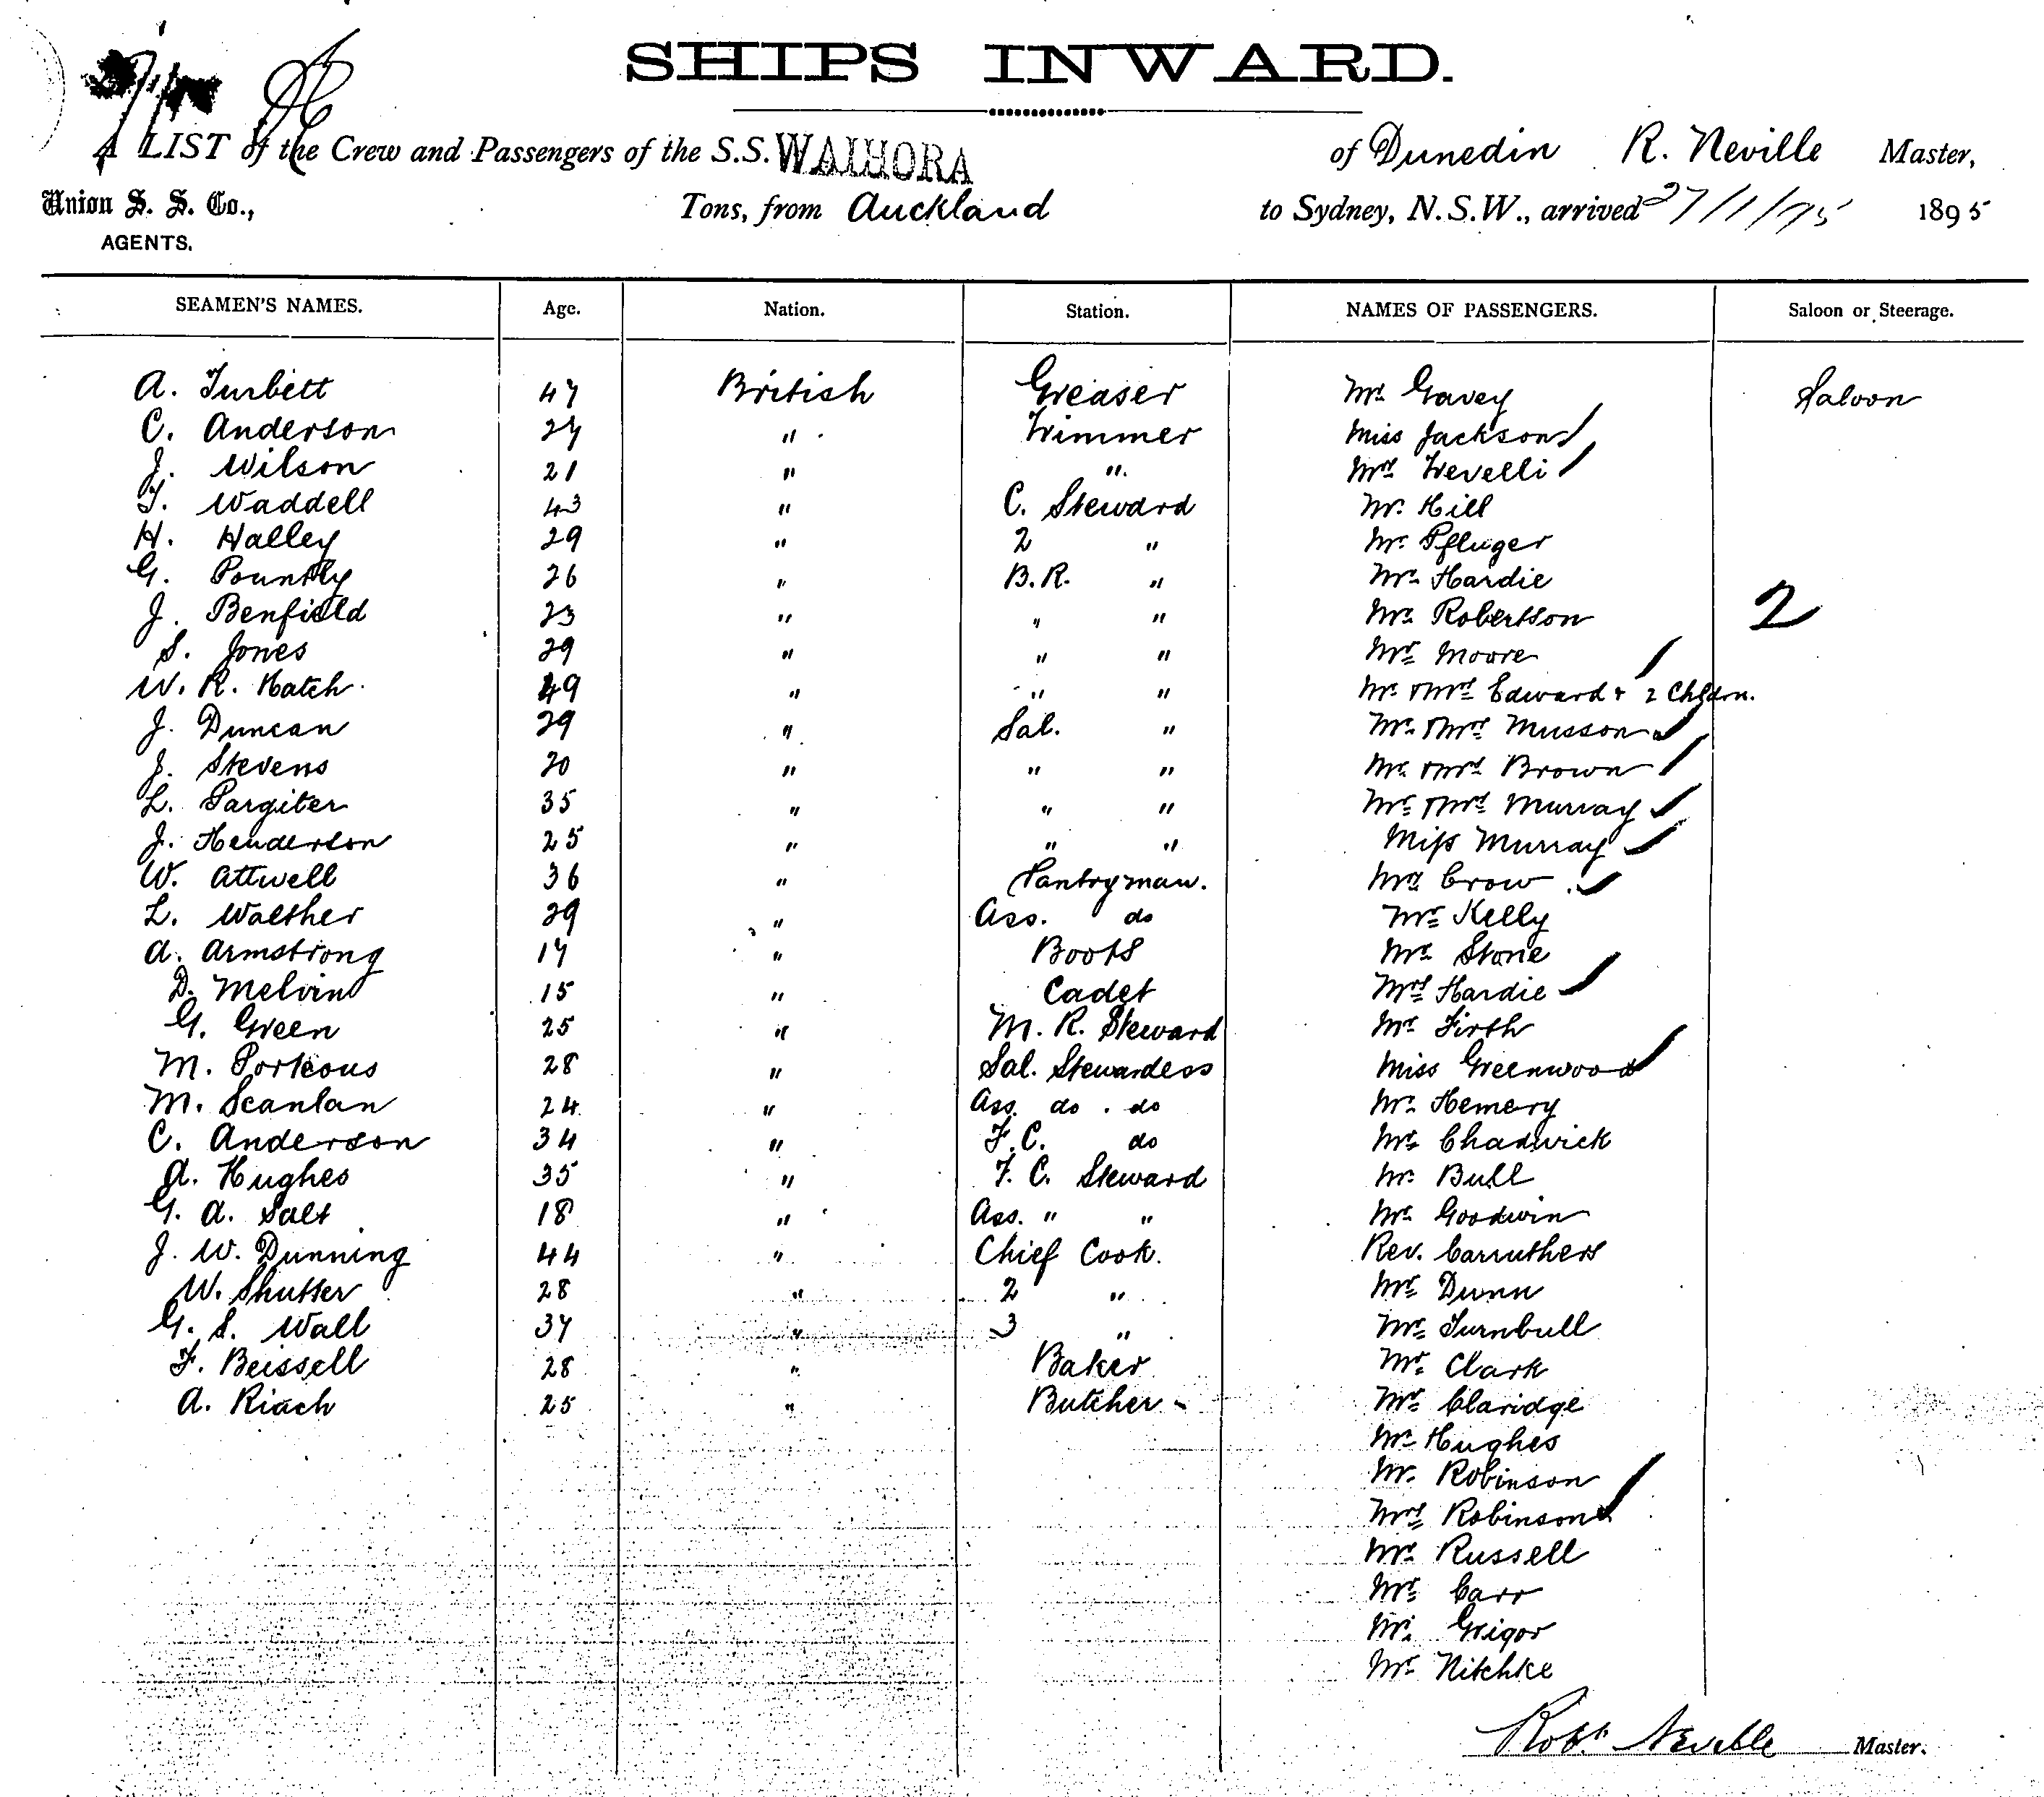 SHIPS INWARD.
A LIST of the Crew and Passengers of the S.S. WAIHORA of Dunedin R. Neville Master,
Union S. S. Co., Tons, from Auckland to Sydney, N.S.W., arrived 27/1/95 1895
AGENTS.
SEAMEN'S NAMES. Age. Nation. Station. NAMES OF PASSENGERS. Saloon or Steerage.
A. Turbett 47 British Greaser Mr. Gavey Saloon
C. Anderson 27 " Trimmer Miss Jackson
J. Wilson 21 " " Mrs Trevelli
T. Waddell 43 " C. Steward Mr. Hill
H. Halley 29 " 2 " Mr. Pfluger
G. 26 " B.R. " Mr. Hardie
J. Benfield 23 " " " Mr. Robertson 2
S. Jones 29 " " " Mr. Moore
W. R. Hatch 49 " " " Mr. & Mrs Edward & 2 Chldrn.
J. Duncan 29 " Sal. " Mr. & Mrs Musson
J. Stevens 20 " " " Mr. & Mrs Brown
L. Pargiter 35 " " " Mr. & Mrs Murray
J. Henderson 25 " " " Miss Murray
W. Attwell 36 " Pantryman. Mrs Crow
L. Walther 29 " Ass. do Mr. Kelly
A. Armstrong 17 " Boots Mr. Stone
D. Melvin 15 " Cadet Mrs Hardie
G. Green 25 " M. R. Steward Mr. Firth
M. Porteous 28 " Sal. Stewardess Miss Greenwood
M. Scanlan 24 " Ass. do. do Mr. Hemery
C. Anderson 34 " F. C. do Mr. Chadwick
A. Hughes 35 " F. C. Steward Mr. Bull
G. A. Salt 18 " Ass. " " Mr. Goodwin
J. W. Dunning 44 " Chief Cook. Rev. Carruthers
W. Shutter 28 " 2 " Mr. Dunn
G. S. Wall 37 " 3 " Mr. Turnbull
F. Beissell 28 " Baker Mr. Clark
A. Riach 25 " Butcher Mr. Claridge
Mr. Hughes
Mr. Robinson
Mrs Robinson
Mr. Russell
Mr. Carr
Mr. Grigor
Mr. Nitchke
Robt. Neville Master.